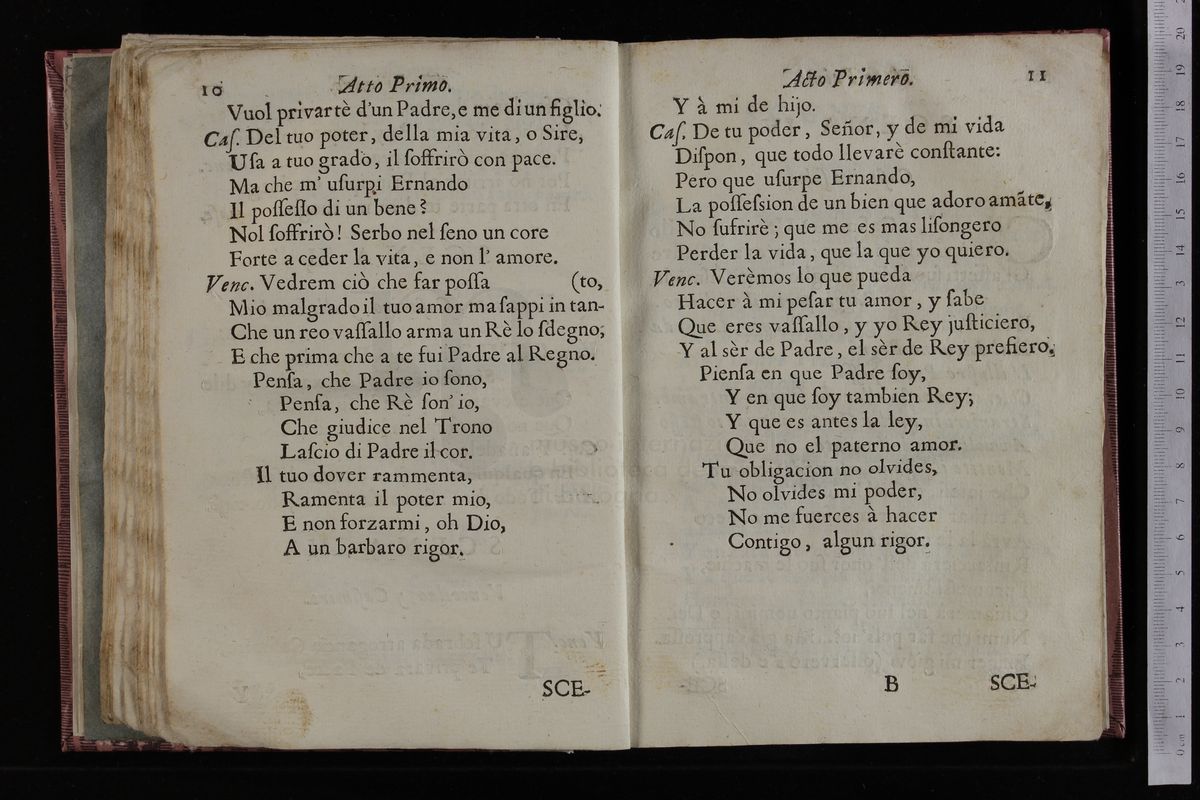 10
Atto Primo.
Vuol privartè d'un Padre, e me di un figlio.
Caſ. Del tuo poter, della mia vita, o Sire,
Uſa a tuo grado, il ſoffrirò con pace.
Ma che m' uſurpi Ernando
Il poſſeſſo di un bene?
Nol ſoffrirò! Serbo nel ſeno un core
Forte a ceder la vita, e non l' amore.
Venc. Vedrem ciò che far poſſa (to,
Mio malgrado il tuo amor ma ſappi in tan-
Che un reo vaſſallo arma un Rè lo ſdegno;
E che prima che a te fui Padre al Regno.
Penſa, che Padre io ſono,
Penſa, che Rè ſon' io,
Che giudice nel Trono
Laſcio di Padre il cor.
Il tuo dover rammenta,
Ramenta il poter mio,
E non forzarmi, oh Dio,
A un barbaro rigor.
SCE-
Acto Primero.
11
Y à mi de hijo.
Caſ. De tu poder, Señor, y de mi vida
Diſpon, que todo llevarè conſtante:
Pero que uſurpe Ernando,
La poſſeſsion de un bien que adoro amãte,
No ſufrirè; que me es mas liſongero
Perder la vida, que la que yo quiero.
Venc. Verèmos lo que pueda
Hacer à mi peſar tu amor, y ſabe
Que eres vaſſallo, y yo Rey juſticiero,
Y al sèr de Padre, el sèr de Rey prefiero.
Pienſa en que Padre ſoy,
Y en que ſoy tambien Rey;
Y que es antes la ley,
Que no el paterno amor.
Tu obligacion no olvides,
No olvides mi poder,
No me fuerces à hacer
Contigo, algun rigor.
B
SCE-